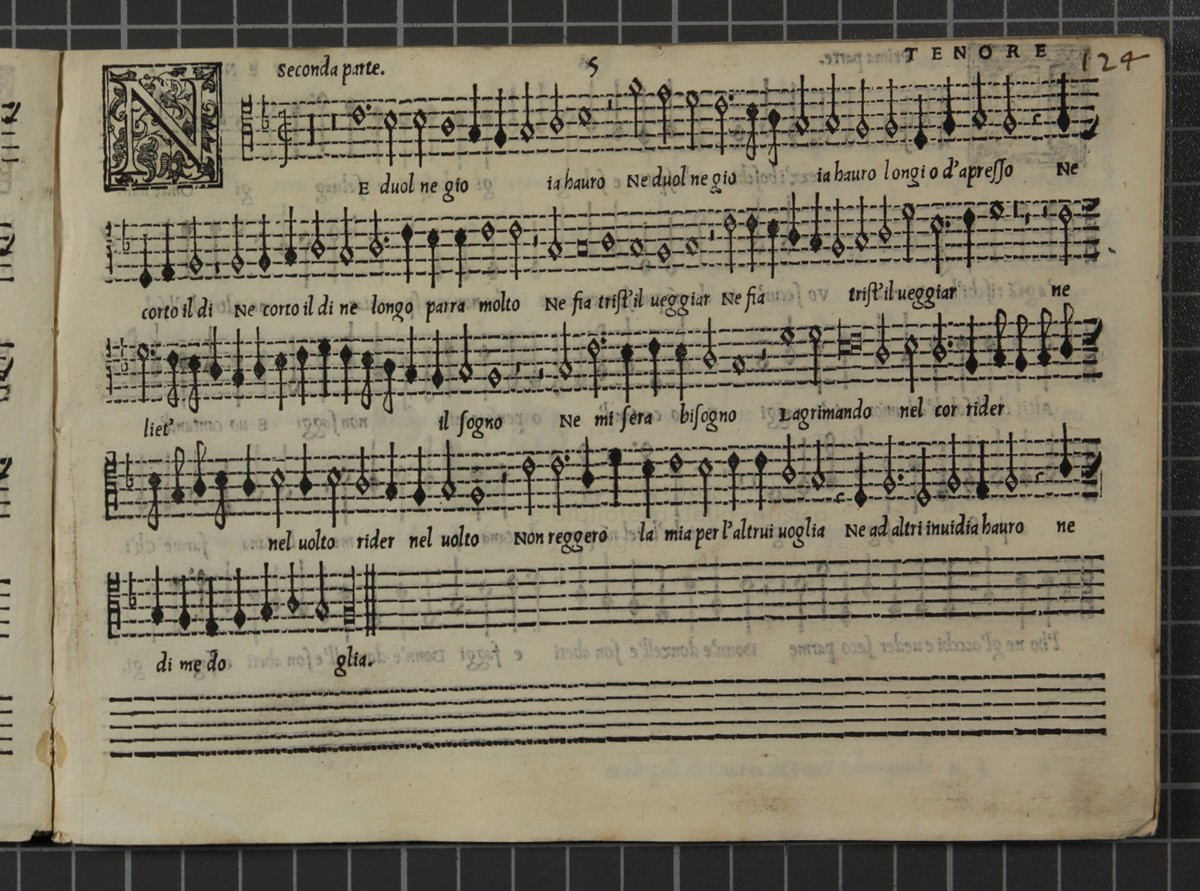 Seconda parte. 5 TENORE 124
NE duol ne gio ia hauro Ne duol ne gio ia hauro longi o d'apresso Ne
corto il di Ne corto il di ne longo parra molto Ne fia trist'il ueggiar Ne fia trist'il ueggiar ne
liet' il sogno Ne mi sera bisogno Lagrimando nel cor rider
nel uolto rider nel uolto Non reggero la mia per l'altrui uoglia Ne ad altri inuidia hauro ne
di me do glia.